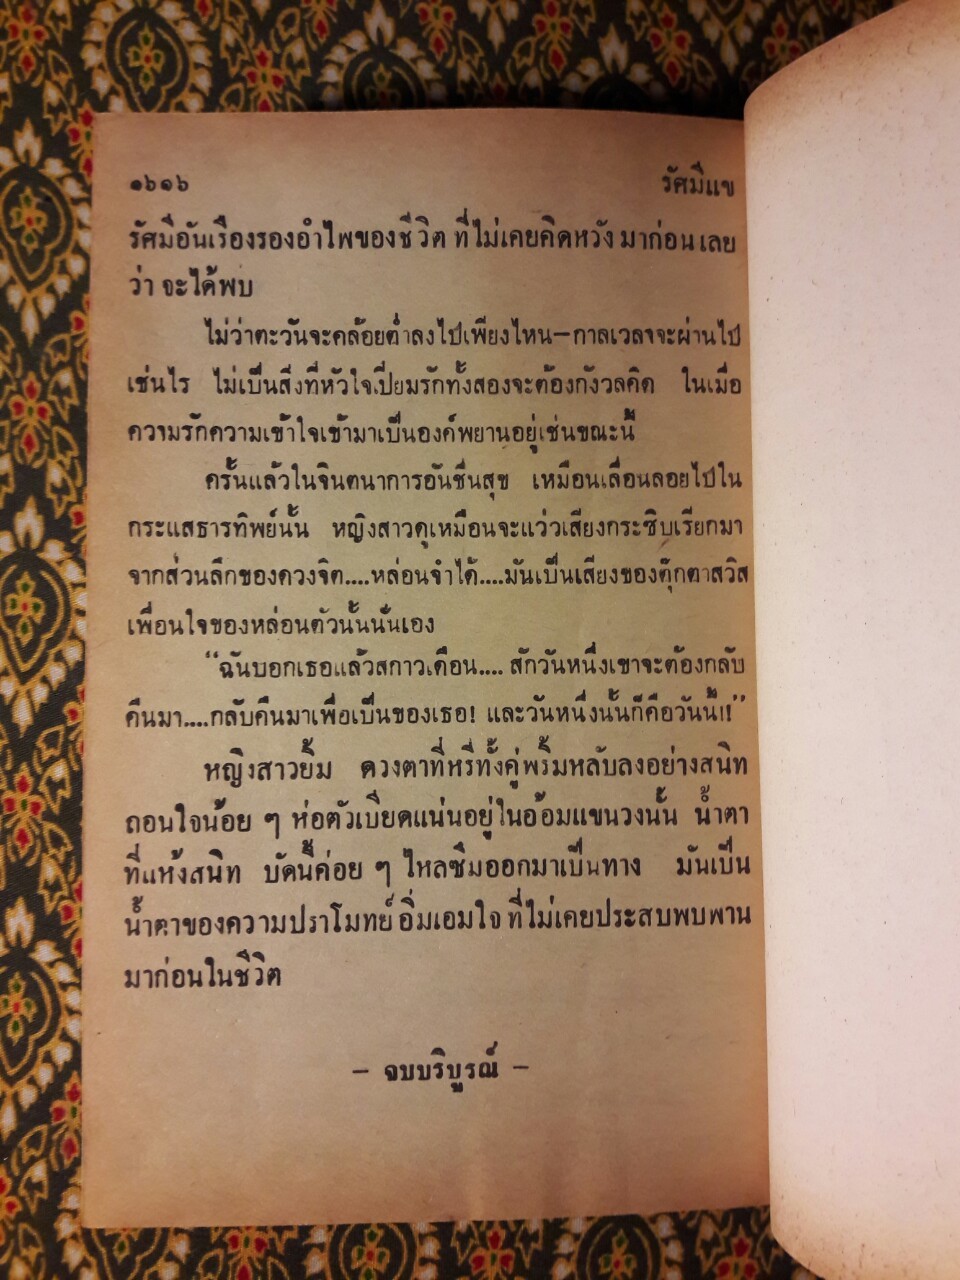 ๑๖๑๖ รัศมีแข
รัศมีอันเรืองรองอำไพของชีวิต ที่ไม่เคยคิดหวัง มาก่อน เลย
ว่า จะได้พบ
ไม่ว่าตะวันจะคล้อยต่ำลงไปเพียงไหน—กาลเวลาจะผ่านไป
เช่นไร ไม่เป็นสิ่งที่หัวใจเปี่ยมรักทั้งสองจะต้องกังวลคิด ในเมื่อ
ความรักความเข้าใจเข้ามาเป็นองค์พยานอยู่เช่นขณะนี้
ครั้นแล้วในจินตนาการอันชื่นสุข เหมือนเลื่อนลอยไปใน
กระแสธารทิพย์นั้น หญิงสาวดูเหมือนจะแว่วเสียงกระซิบเรียกมา
จากส่วนลึกของดวงจิต....หล่อนจำได้....มันเป็นเสียงของตุ๊กตาสวิส
เพื่อนใจของหล่อนตัวนั้นนั่นเอง
“ฉันบอกเธอแล้วสกาวเดือน.... สักวันหนึ่งเขาจะต้องกลับ
คืนมา....กลับคืนมาเพื่อเป็นของเธอ! และวันหนึ่งนั้นก็คือวันนี้!!”
หญิงสาวยิ้ม ดวงตาที่หรี่ทั้งคู่พริ้มหลับลงอย่างสนิท
ถอนใจน้อย ๆ ห่อตัวเบียดแน่นอยู่ในอ้อมแขนวงนั้น น้ำตา
ที่แห้งสนิท บัดนี้ค่อย ๆ ไหลซึมออกมาเป็นทาง มันเป็น
น้ำตาของความปราโมทย์ อิ่มเอมใจ ที่ไม่เคยประสบพบพาน
มาก่อนในชีวิต
– จบบริบูรณ์ –